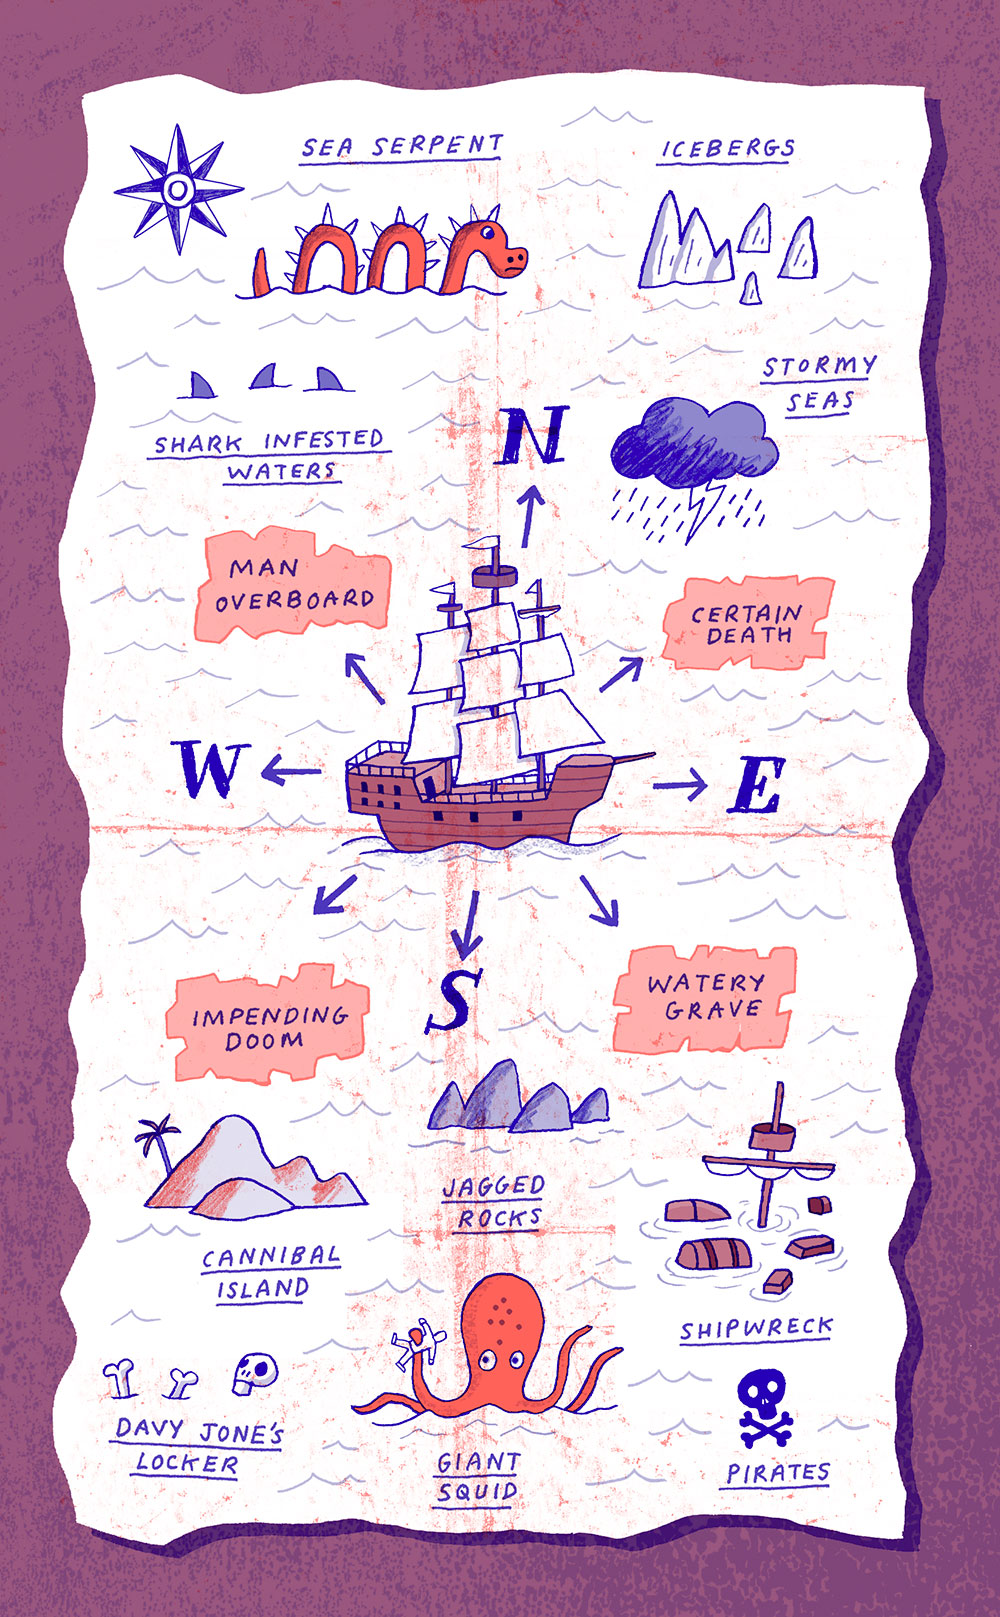 SEA SERPENT
ICEBERGS
STORMY
SEAS
SHARK INFESTED
WATERS
N
MAN
OVERBOARD
CERTAIN
DEATH
W
E
IMPENDING
DOOM
S
WATERY
GRAVE
JAGGED
ROCKS
CANNIBAL
ISLAND
SHIPWRECK
DAVY JONE'S
LOCKER
GIANT
SQUID
PIRATES